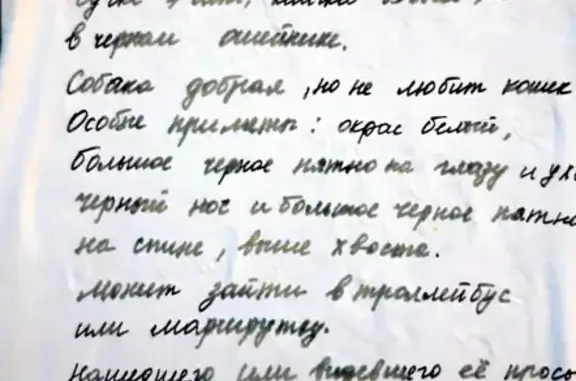 в черном ошейнике.
Собака добрая, но не любит кошек
Особые приметы: окрас белый,
большое черное пятно на глазу и ухе
черный нос и большое черное пятно
на спине, выше хвоста.
Может зайти в троллейбус
или маршрутку.
нашедшего или видевшего её просьб